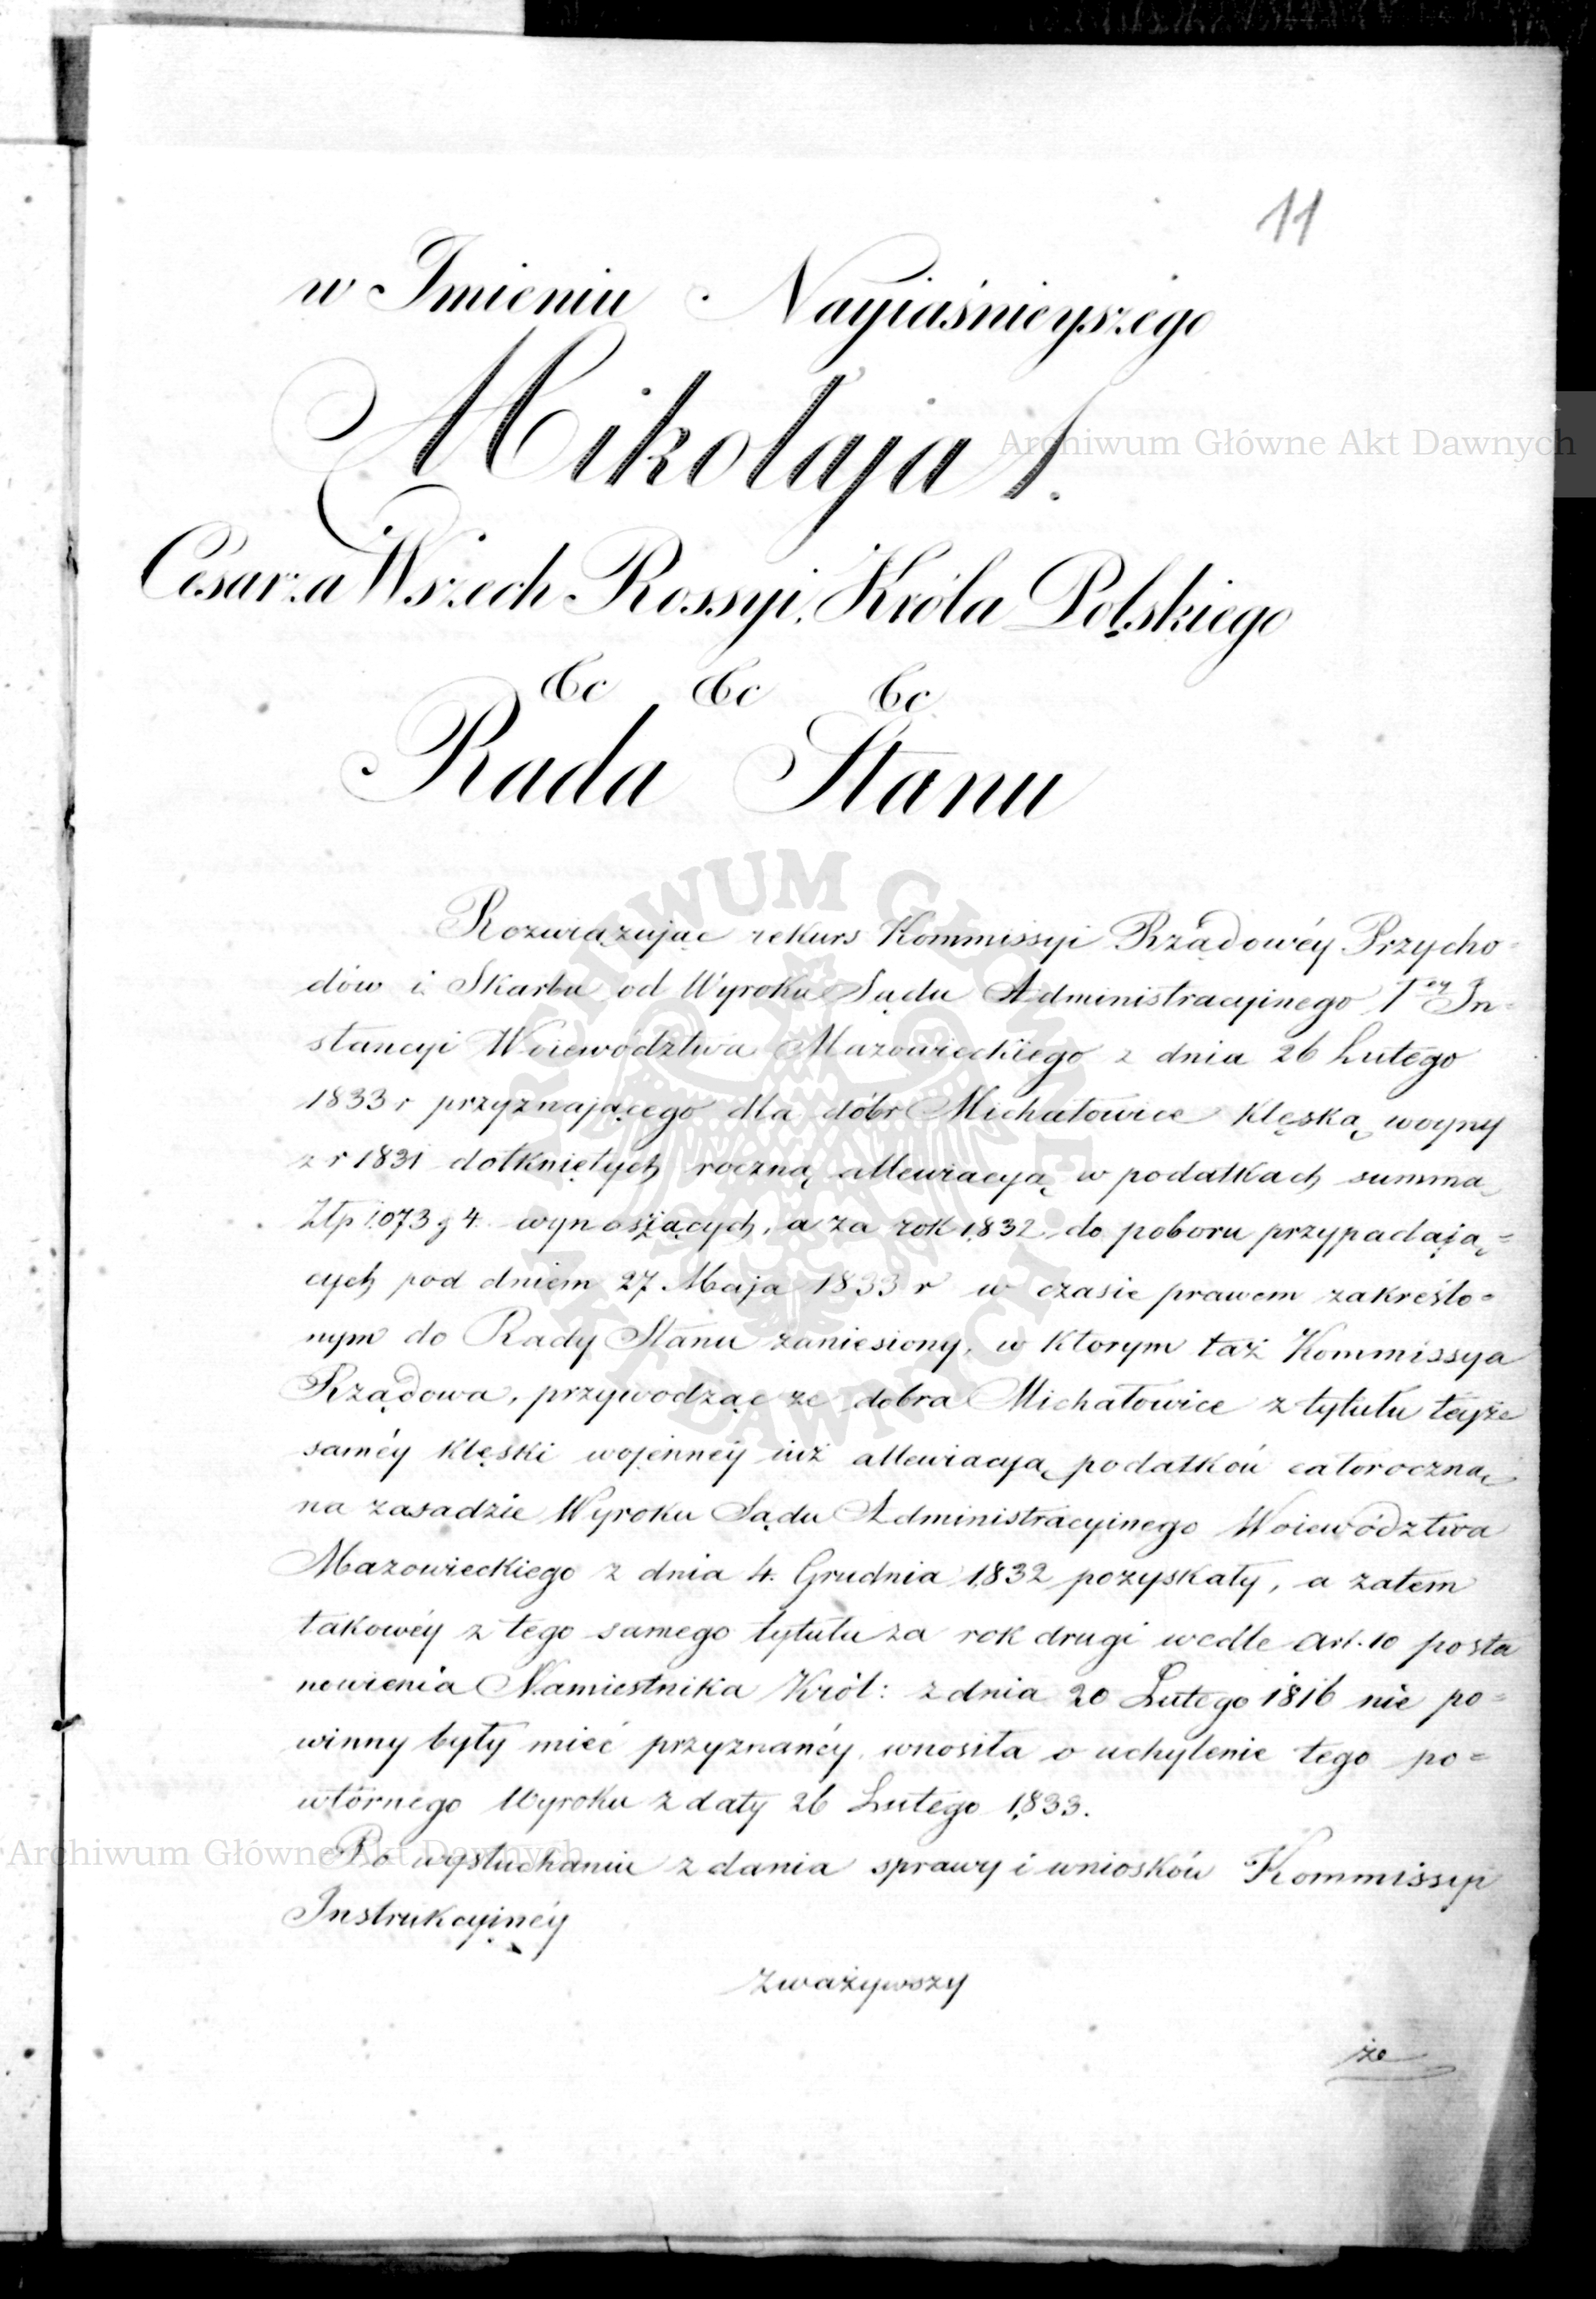 11
w Imieniu Nayiaśnieyszego
Mikołaja I.
Cesarza Wszech Rossyi, Króla Polskiego
&c &c &c
Rada Stanu
Rozwiązując rekurs Kommissyi Rządowéy Przycho=
dów i Skarbu od Wyroku Sądu Administracyinego I ey In=
stancyi Woiewództwa Mazowieckiego z dnia 26 Lutego
1833 r przyznającego dla dóbr Michałowice klęską woyny
z r 1831 dotkniętych roczną allewiacyą w podatkach summą
Złp 1073 g 4. wynoszących, a za rok 1832 do poboru przypadają=
cych pod dniem 27 Maja 1833 r w czasie prawem zakreślo=
nym do Rady Stanu zaniesiony, w ktorym taż Kommissya
Rządowa, przywodząc ze dobra Michałowice z tytułu teyże
saméy klęski wojennéy iuż allewiacyą podatków całoroczną
na zasadzie Wyroku Sądu Administracyinego Woiewództwa
Mazowieckiego z dnia 4. Grudnia 1832 pozyskały, a zatem
takowéy z tego samego tytułu za rok drugi wedle art. 10 posta
nowienia Namiestnika Król: z dnia 20 Lutego 1816 nie po=
winny były mieć przyznanéy, wnosiła o uchylenie tego po=
wtórnego Wyroku z daty 26 Lutego 1833.
Po wysłuchaniu zdania sprawy i wniosków Kommissyi
Instrukcyinéy
zważywszy
że
Archiwum Główne Akt Dawnych
Archiwum Główne Akt Dawnych
ARCHIWUM GŁÓWNE AKT DAWNYCH